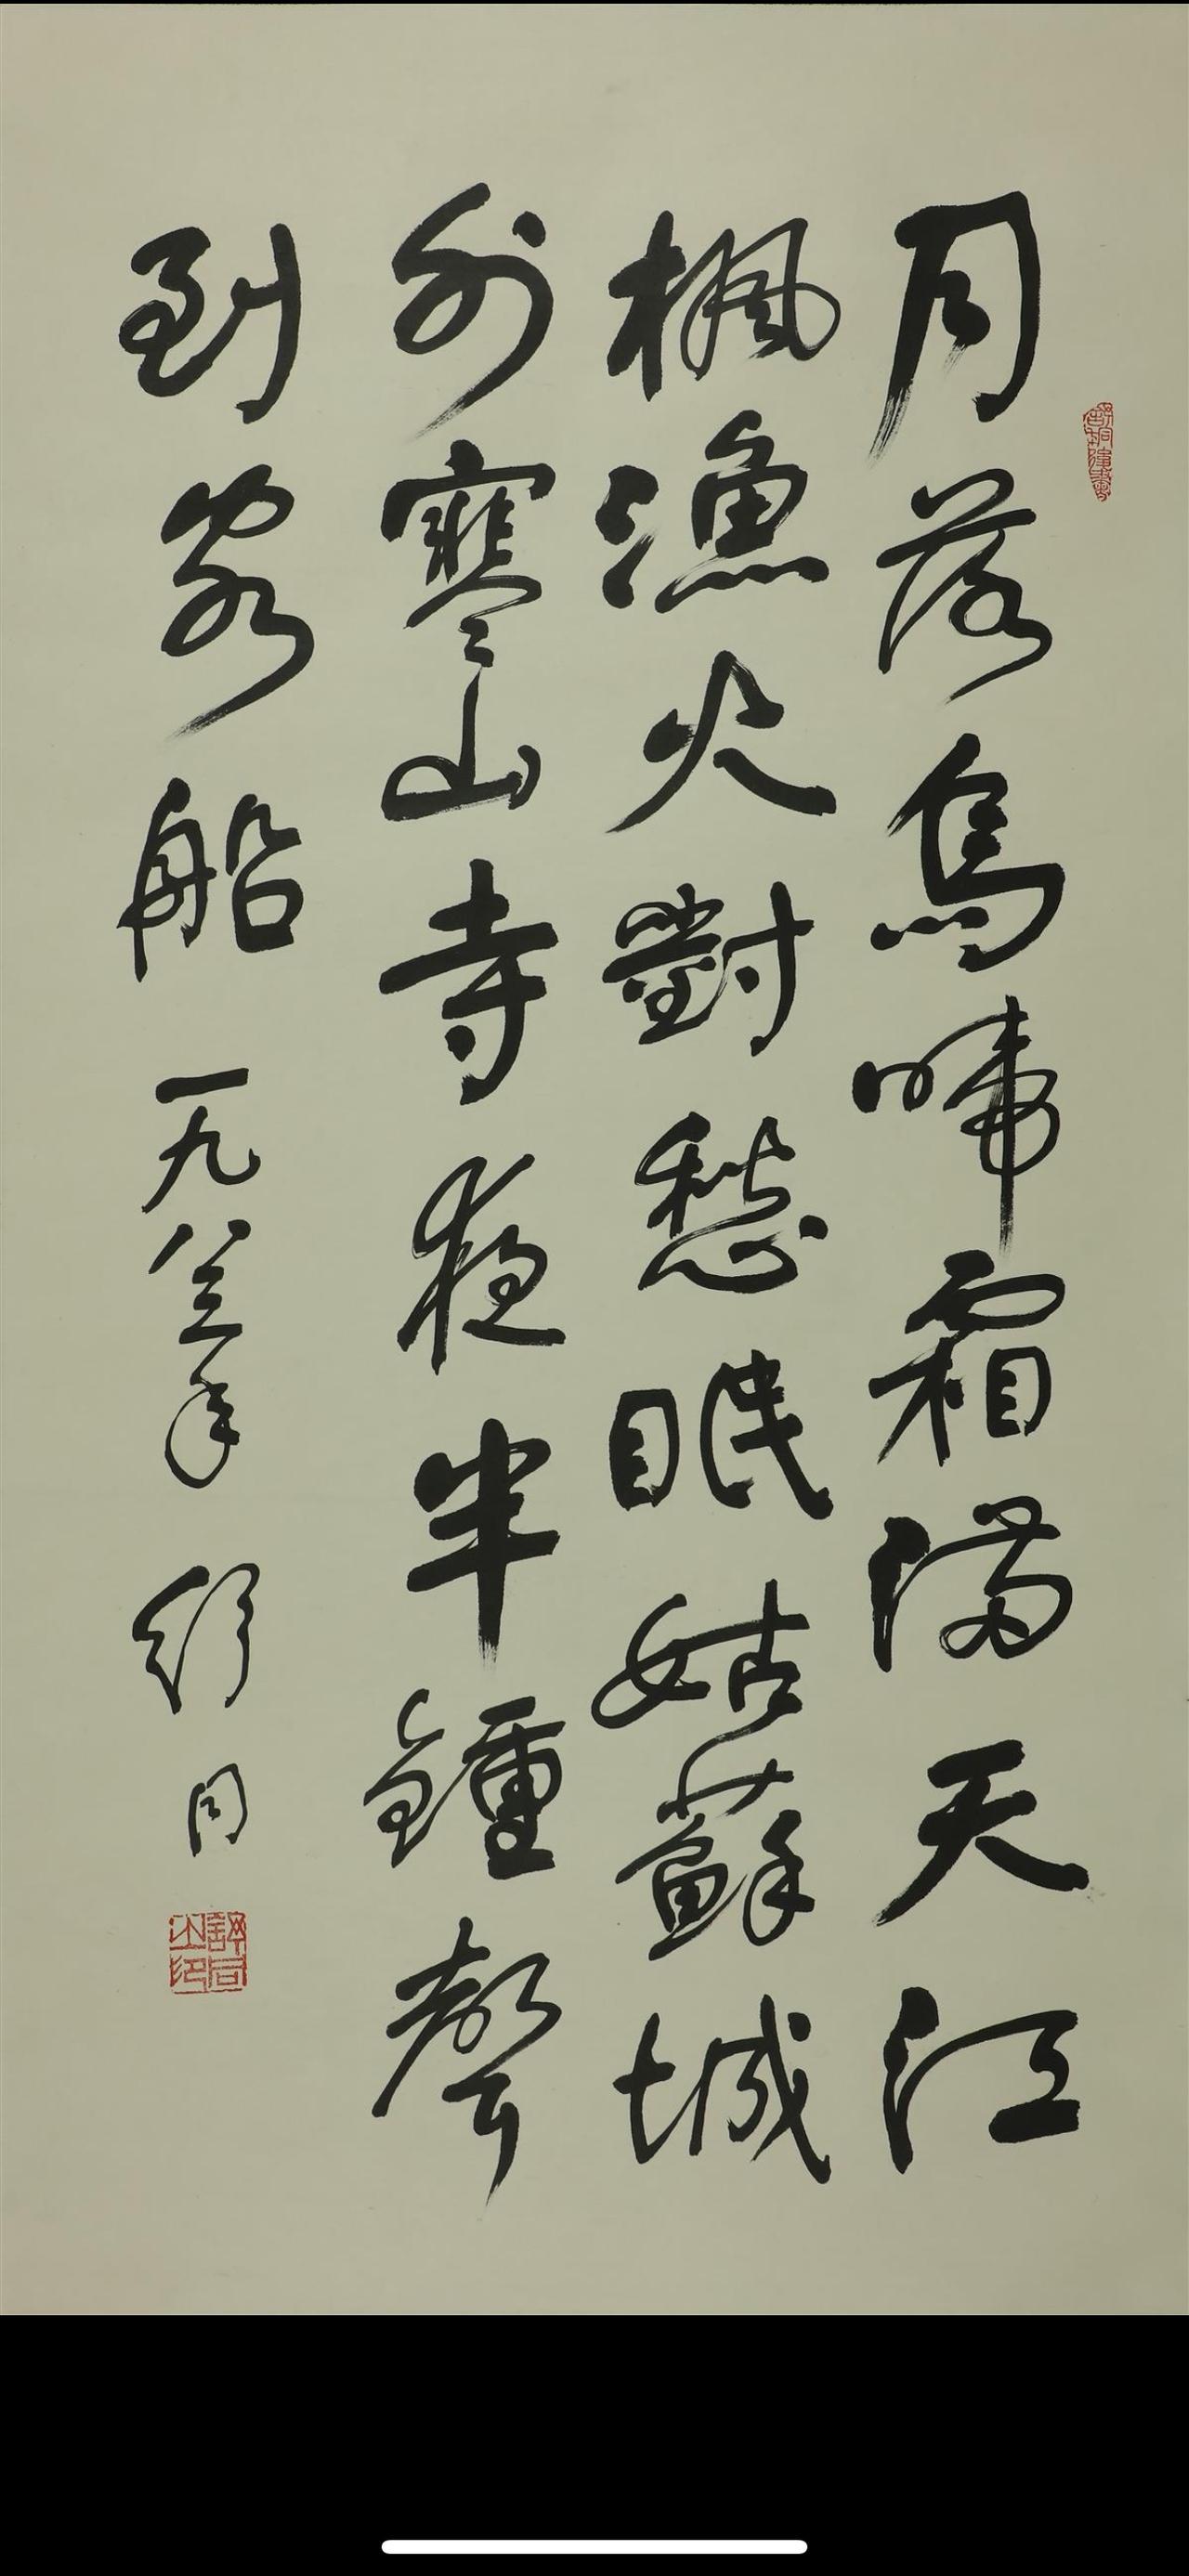 月落烏啼霜滿天江
楓漁火對愁眠姑蘇城
外寒山寺夜半鐘聲
到客船
一九八三年 舒同
舒同之印